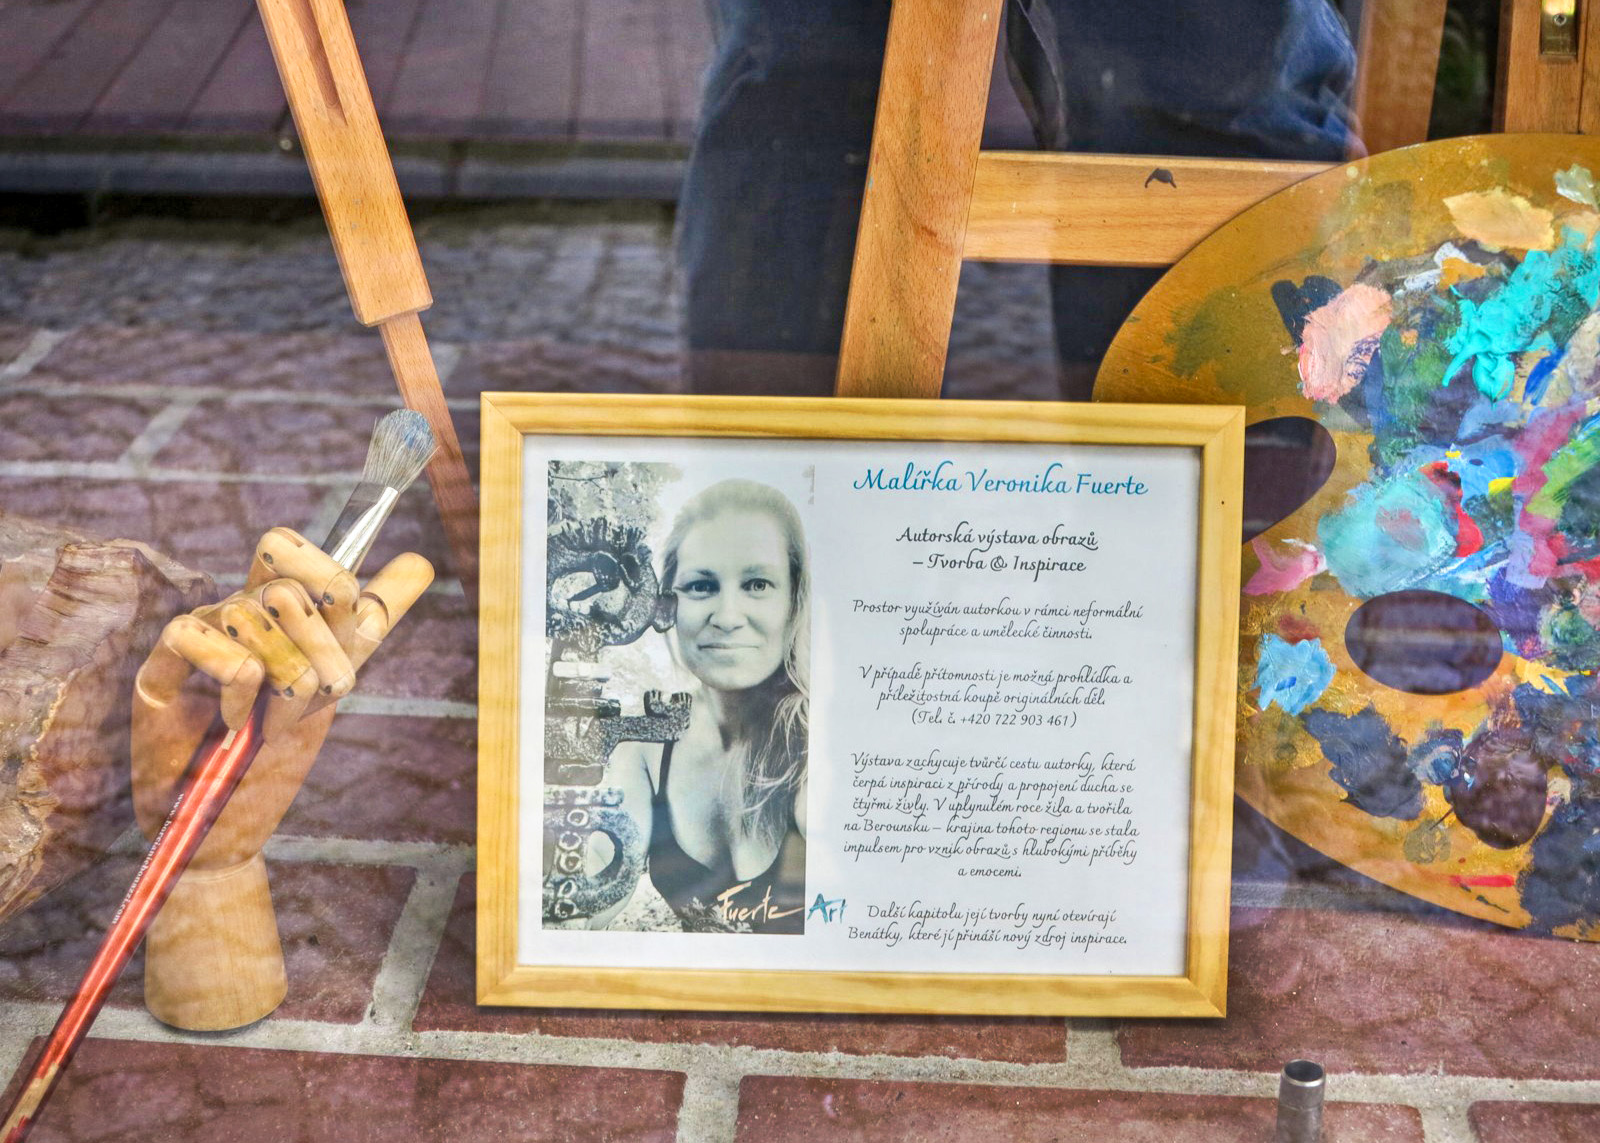 Malířka Veronika Fuerte
Autorská výstava obrazů
– Tvorba & Inspirace
Prostor využíván autorkou v rámci neformální
spolupráce a umělecké činnosti.
V případě přítomnosti je možná prohlídka a
příležitostná koupě originálních děl.
(Tel. č. +420 722 903 461)
Výstava zachycuje tvůrčí cestu autorky, která
čerpá inspiraci z přírody a propojení ducha se
čtyřmi živly. V uplynulém roce žila a tvořila
na Berounsku – krajina tohoto regionu se stala
impulsem pro vznik obrazů s hlubokými příběhy
a emocemi.
Další kapitolu její tvorby nyní otevírají
Benátky, které jí přináší nový zdroj inspirace.
Fuerte Art